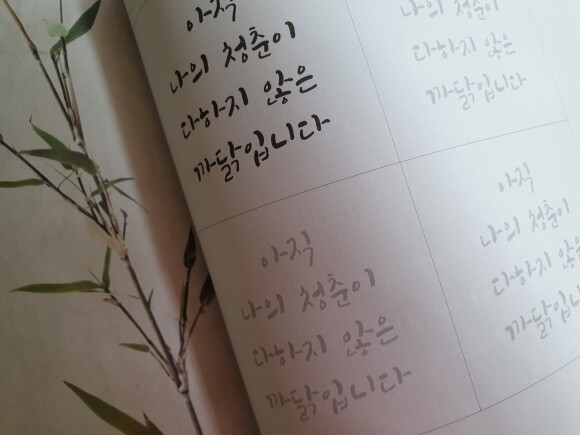 아직
나의 청춘이
다하지 않은
까닭입니다
나의 청춘이
다하지 않은
까닭입니다
아직
나의 청춘이
다하지 않은
까닭입니다
아직
나의 청춘이
다하지 않은
까닭입니